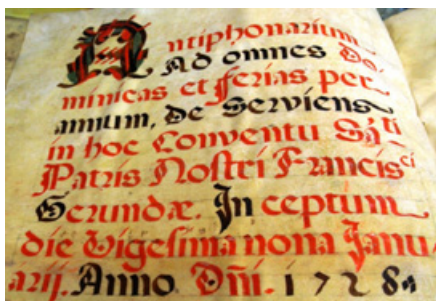 Antiphonarium
Ad omnes Do
minicas et ferias per
annum, de Serviens
in hoc Conventu Sāti
Patris Nostri Francisci
Gerundæ. In ceptum
die Vigesima nona Janu
arij. Anno. Dñi. 1728